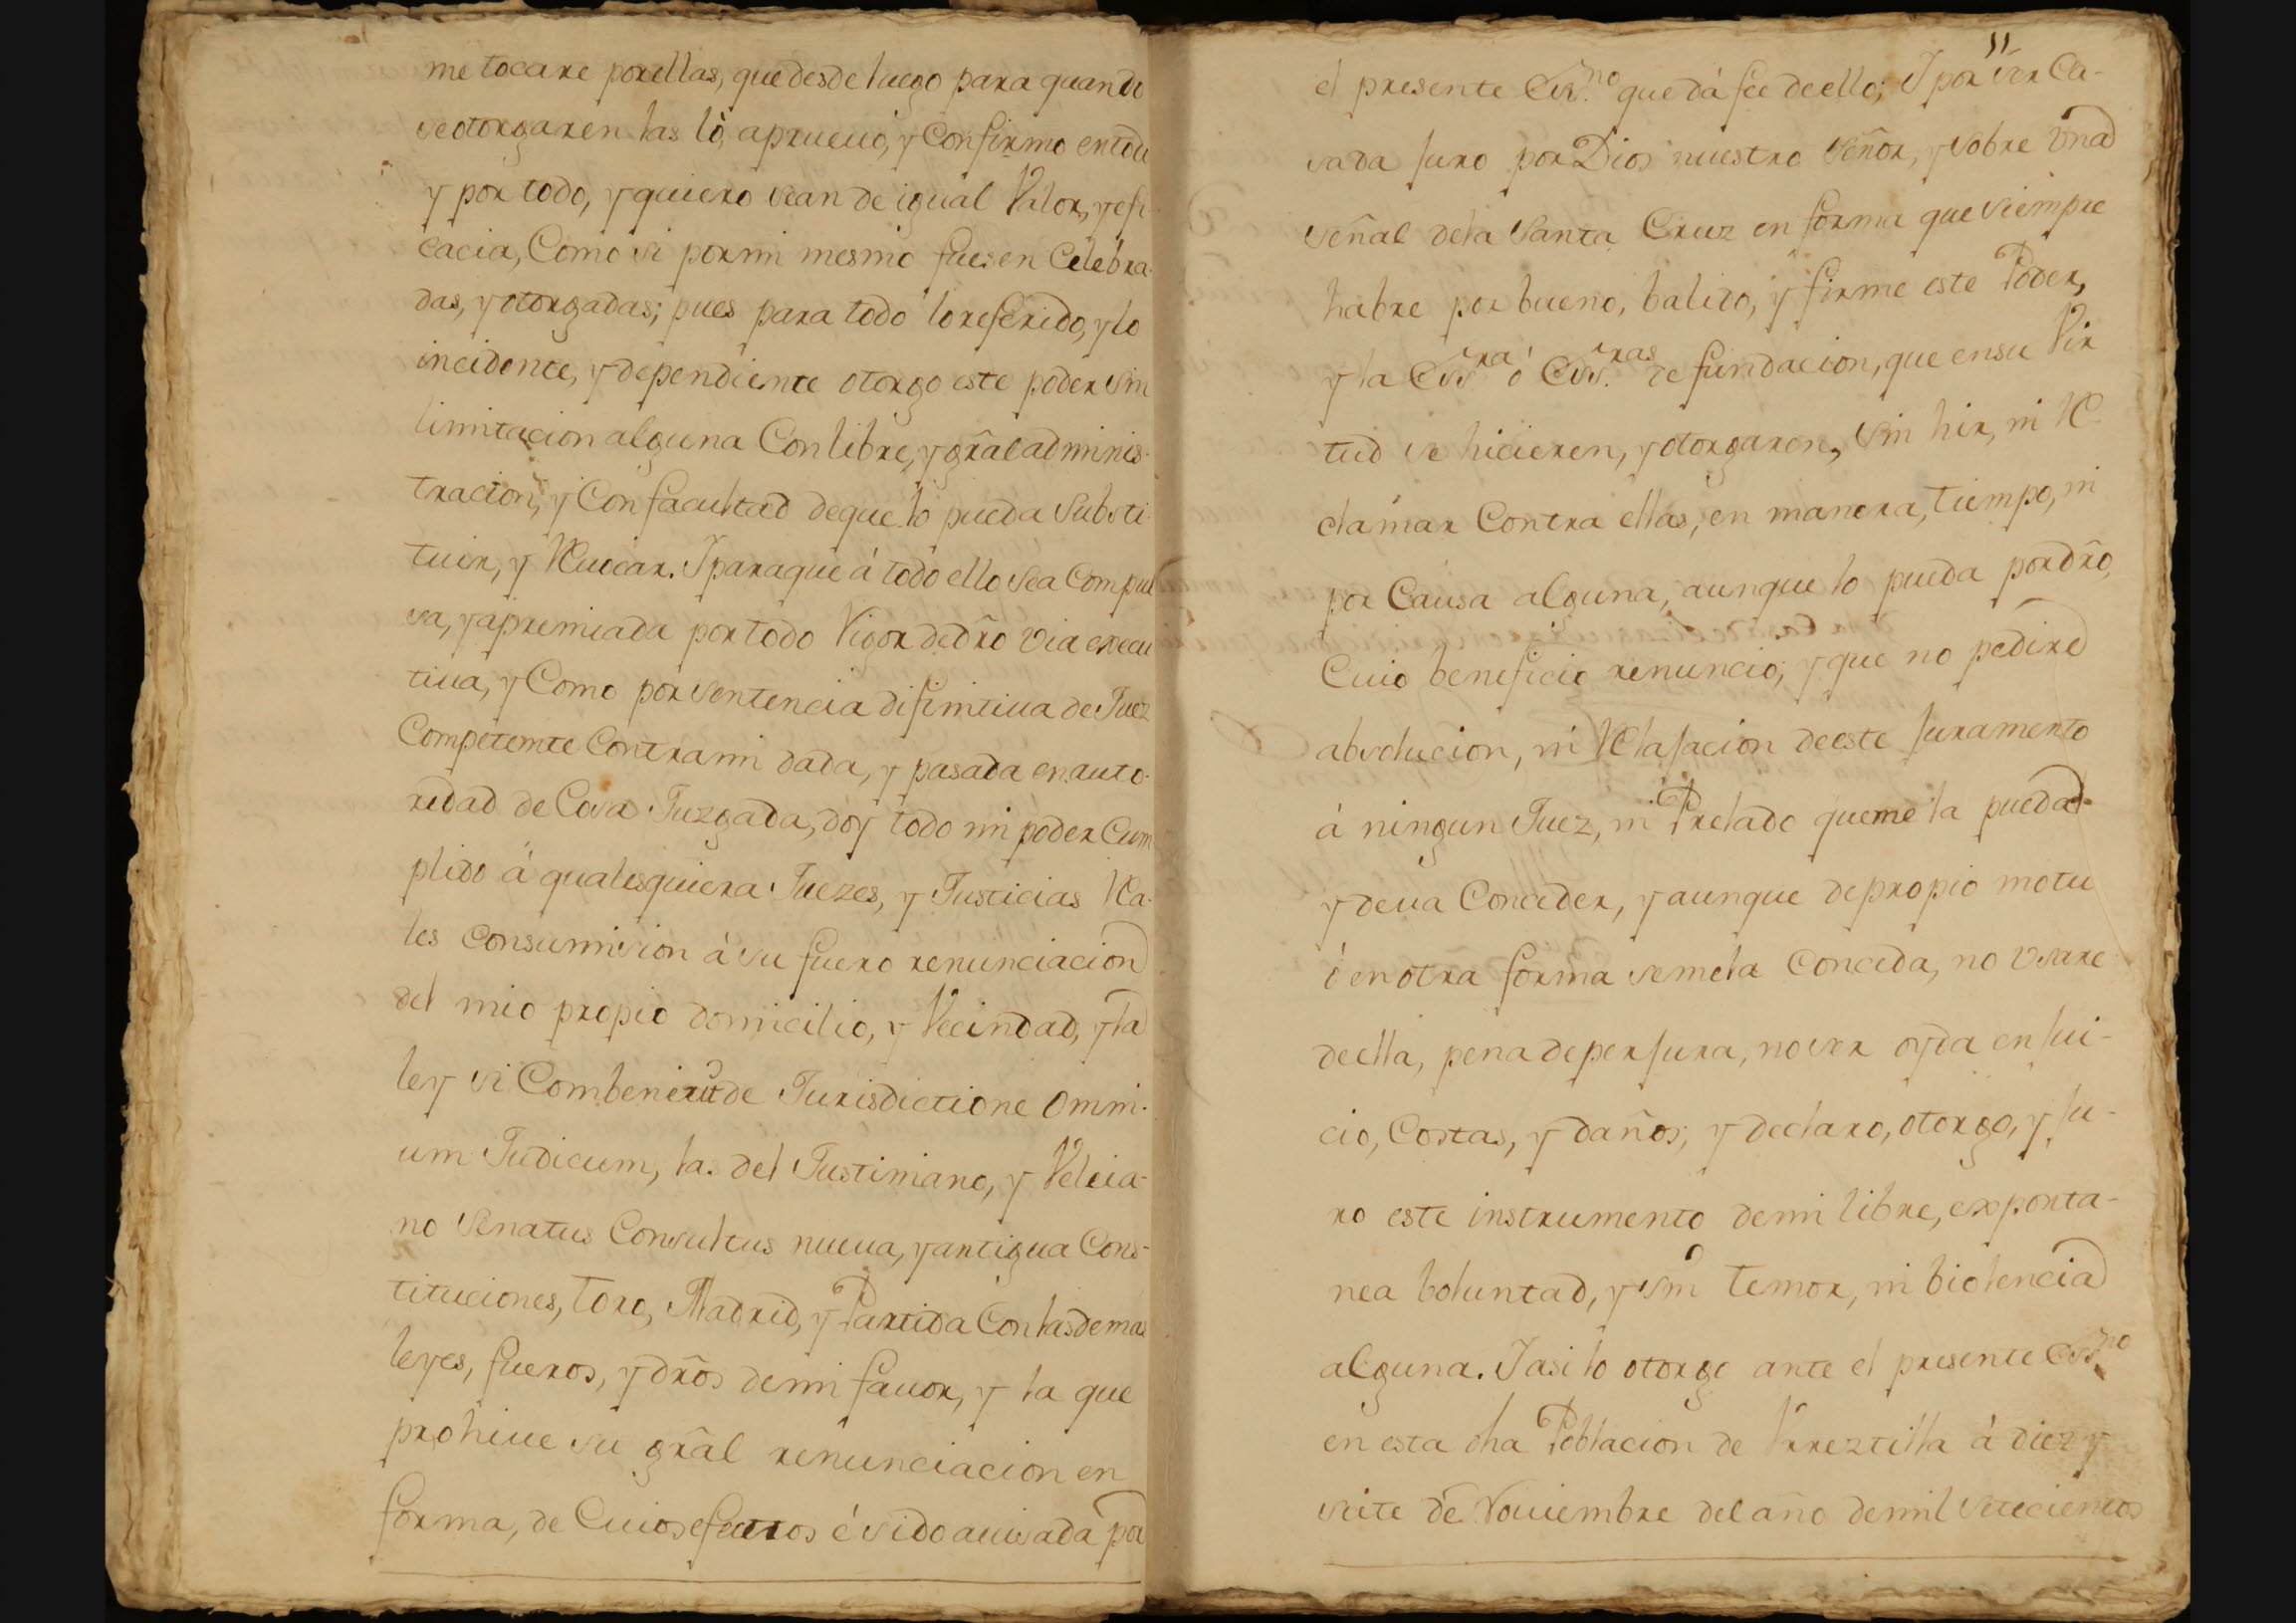 me tocare porellas, que desde luego para quando
se otorgaren las lò, aprueuò, y Confirmo entodo
y por todo, y quiero sean de igual Valor, y efi-
cacia, Como si pormi mesmo fuesen Celebra-
das, y otorgadas; pues para todo lo referido, y lo
incidente, y dependiente otorgo este poder sin
limitacion alguna Con libre, y grâl adminis-
tracion, y Con facultad deque lo pueda Substi-
tuir, y Reuocar. Y paraque à todo ello sea Compul
sa, y apremiada por todo Vigor dedr̂o via execu
tiua, y Como por sentencia difinitiua de Juez
Competemte Contra mi dada, y pasada en auto-
ridad de Cosa Juzgada, doy todo mi poder Cum
plido à qualesquiera Juezes, y Justicias Rea-
les consumision à su fuero renunciacion
del mio propio domicilio, y Vecindad, y la
ley si Combenerit de Jurisdictione Omni-
um Judicum, las del Justiniano, y Veleia-
no Senatus Consultus nueua, y antigua Cons-
tituciones, Toro, Madrid, y Partida Con las demas
leyes, fueros, y dr̂os demi fauor, y la que
prohiue su grâl renunciacion en
forma, de Cuios efectos é sido auisada por
11
el presente Ess.no que dá fee deello; Y por ser Ca-
sada Juro por Dios nuestro Señor, y sobre Vna
señal dela Santa Cruz en forma que siempre
habre por bueno, balido, y firme este Poder,
y la Ess.ra ó Ess.ras de fundacion, que ensu Vir
tud se hicieren, y otorgaren, sin hir, ni Re-
clamar Contra ellas, en manera, tiempo, ni
por Causa alguna, aunque lo pueda pordr̂o,
Cuio beneficio renuncio; y que no pedire
absolucion, ni Relajacion deeste Juramento
à ningun Juez, ni Prelado queme la pueda
y deua Conceder, y aunque depropio motu
ó en otra forma semela Conceda, no Vsare
deella, pena deperjura, noser oyda en Jui-
cio, Costas, y daños; y declaro, otorgo, y Ju-
ro este instrumento demi libre, exponta-
nea boluntad, y sin temor, ni biolencia
alguna. Y asi lo otorgo ante el presente Ess.no
en esta dha Poblacion de Vrreztilla à diez y
seite de Nouiembre del año demil setecientos